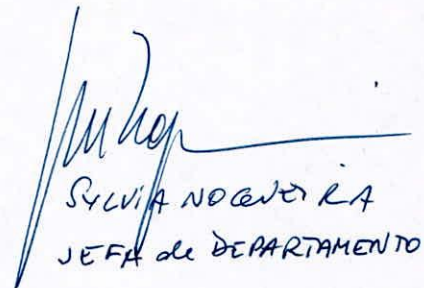 SYLVIA NOGUEIRA
JEFA de DEPARTAMENTO